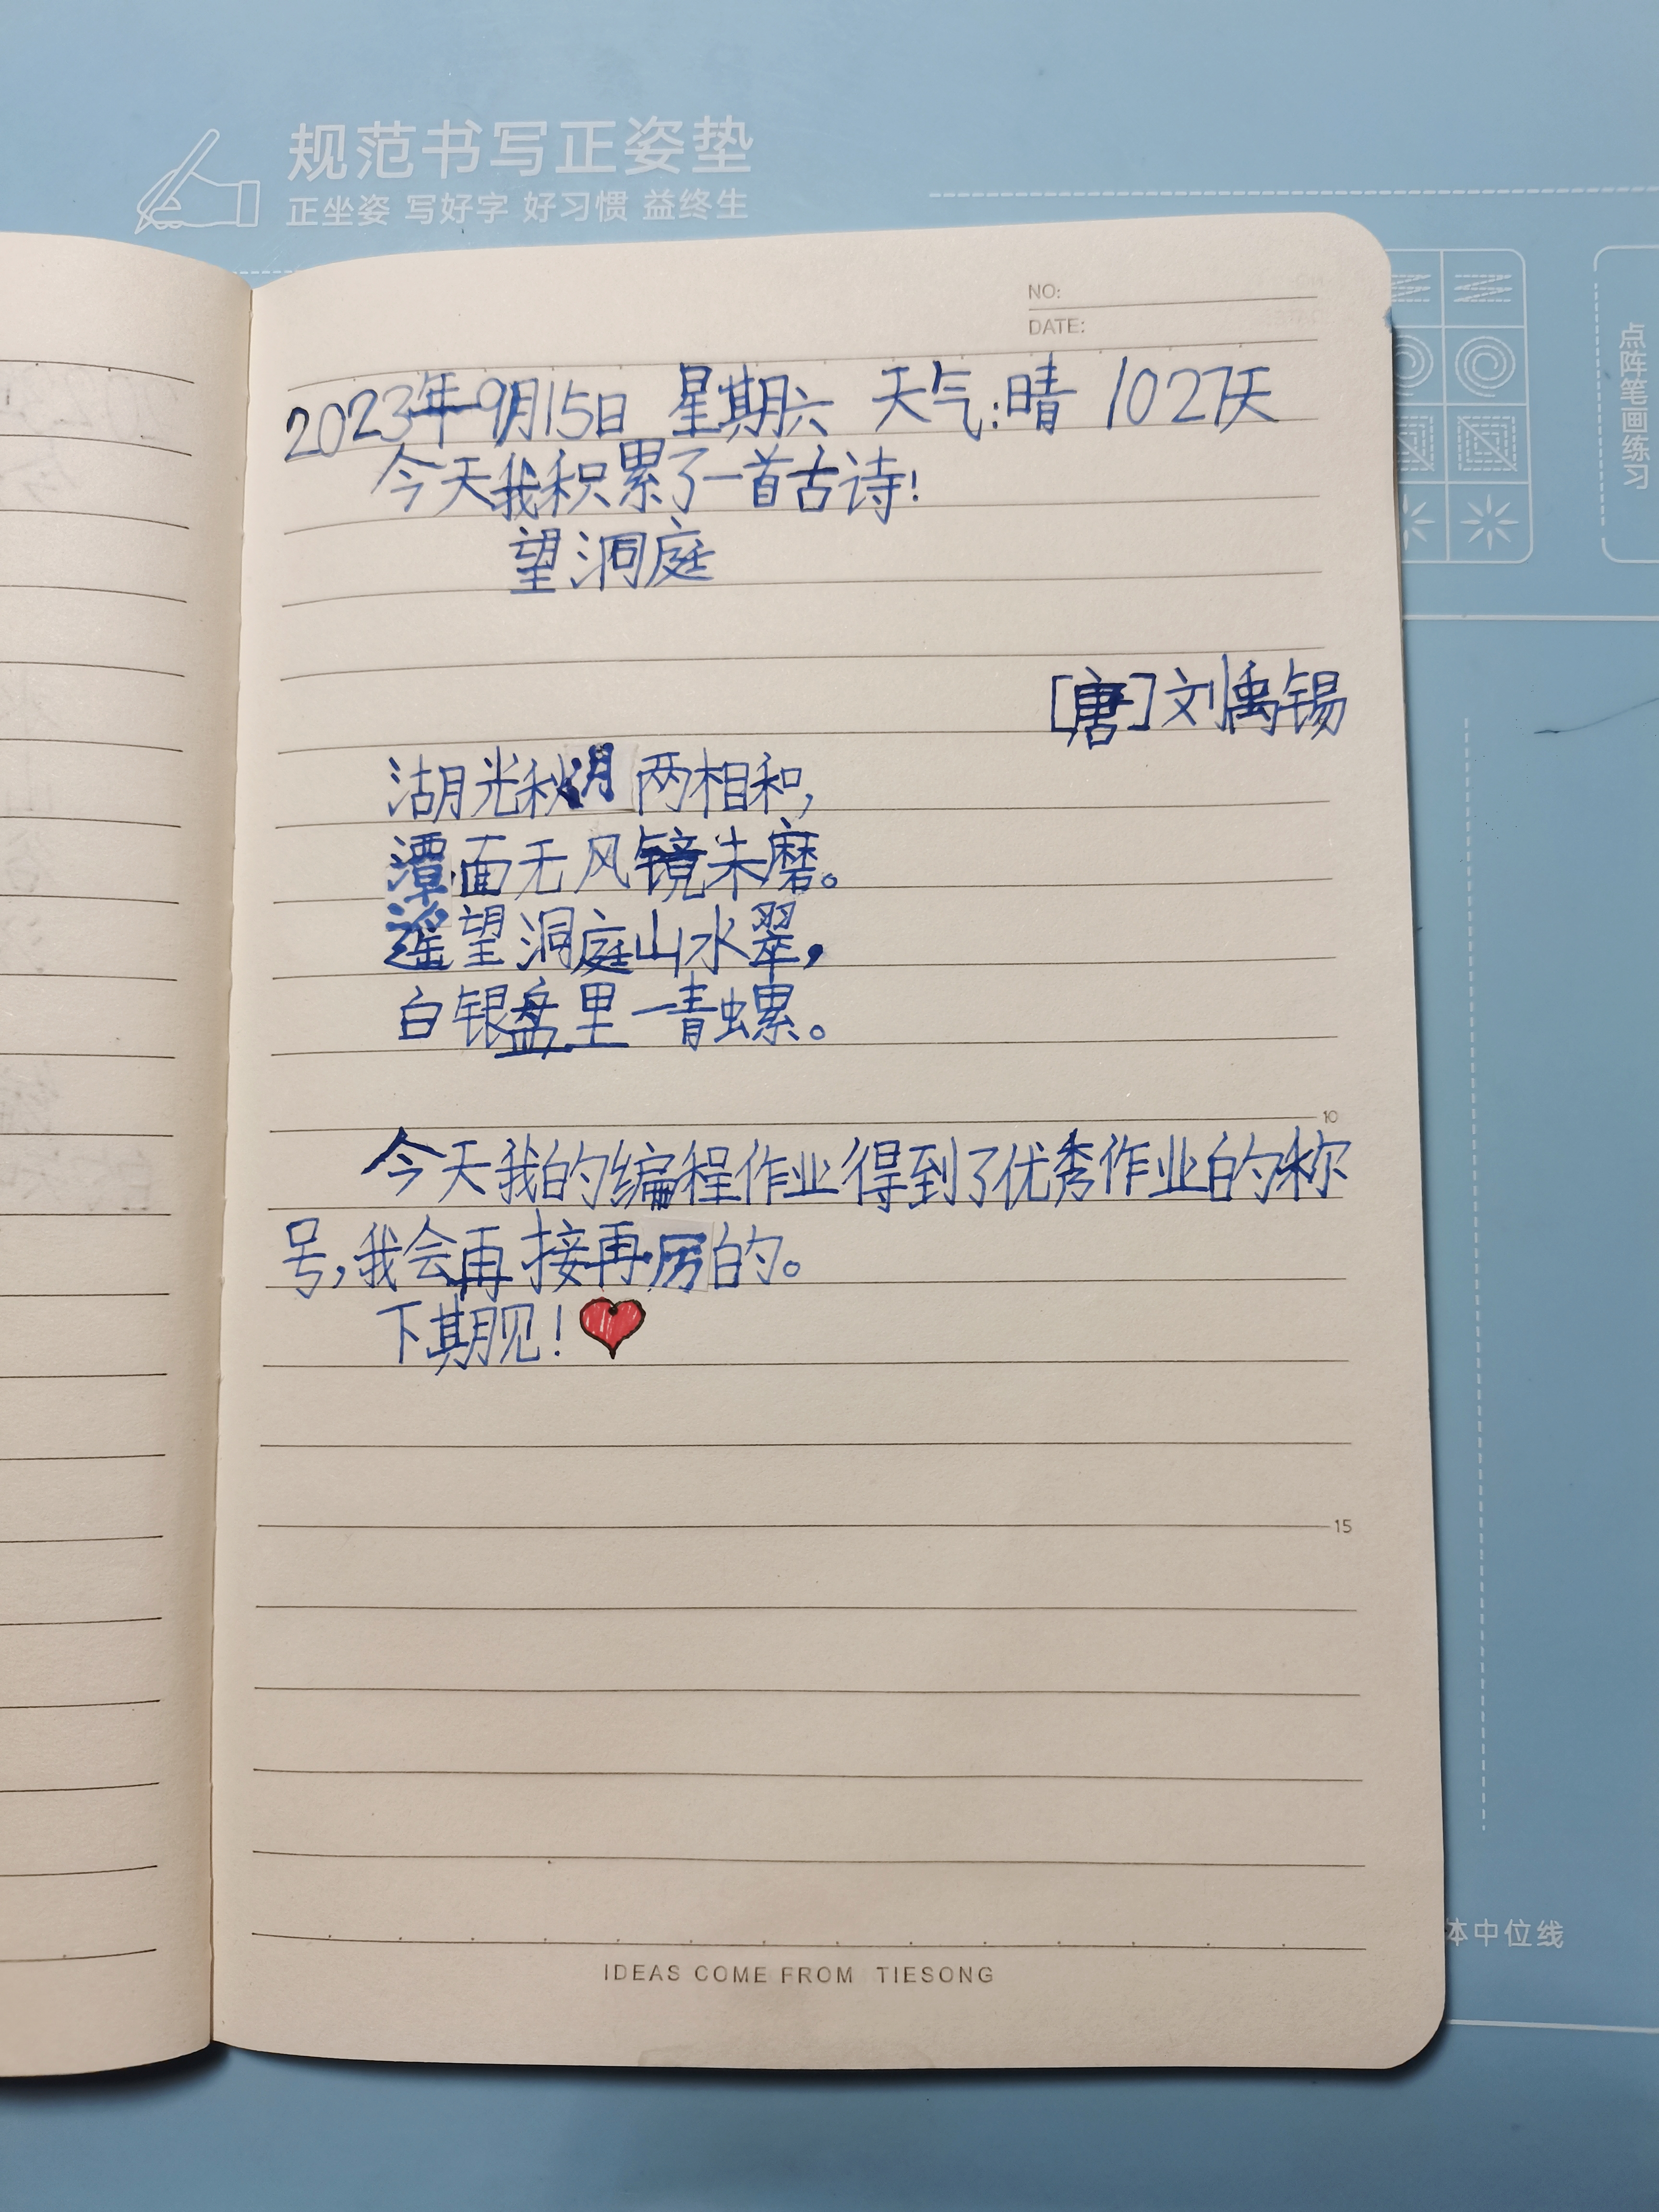 规范书写正姿垫
正坐姿 写好字 好习惯 益终生
点阵笔画练习
NO:
DATE:
2023年9月15日 星期六 天气:晴 1027天
今天我积累了一首古诗!
望洞庭
[唐]刘禹锡
湖光秋月两相和,
潭面无风镜未磨。
遥望洞庭山水翠,
白银盘里一青螺。
10
今天我的编程作业得到了优秀作业的称
号,我会再接再厉的。
下期见!
15
体中位线
IDEAS COME FROM TIESONG